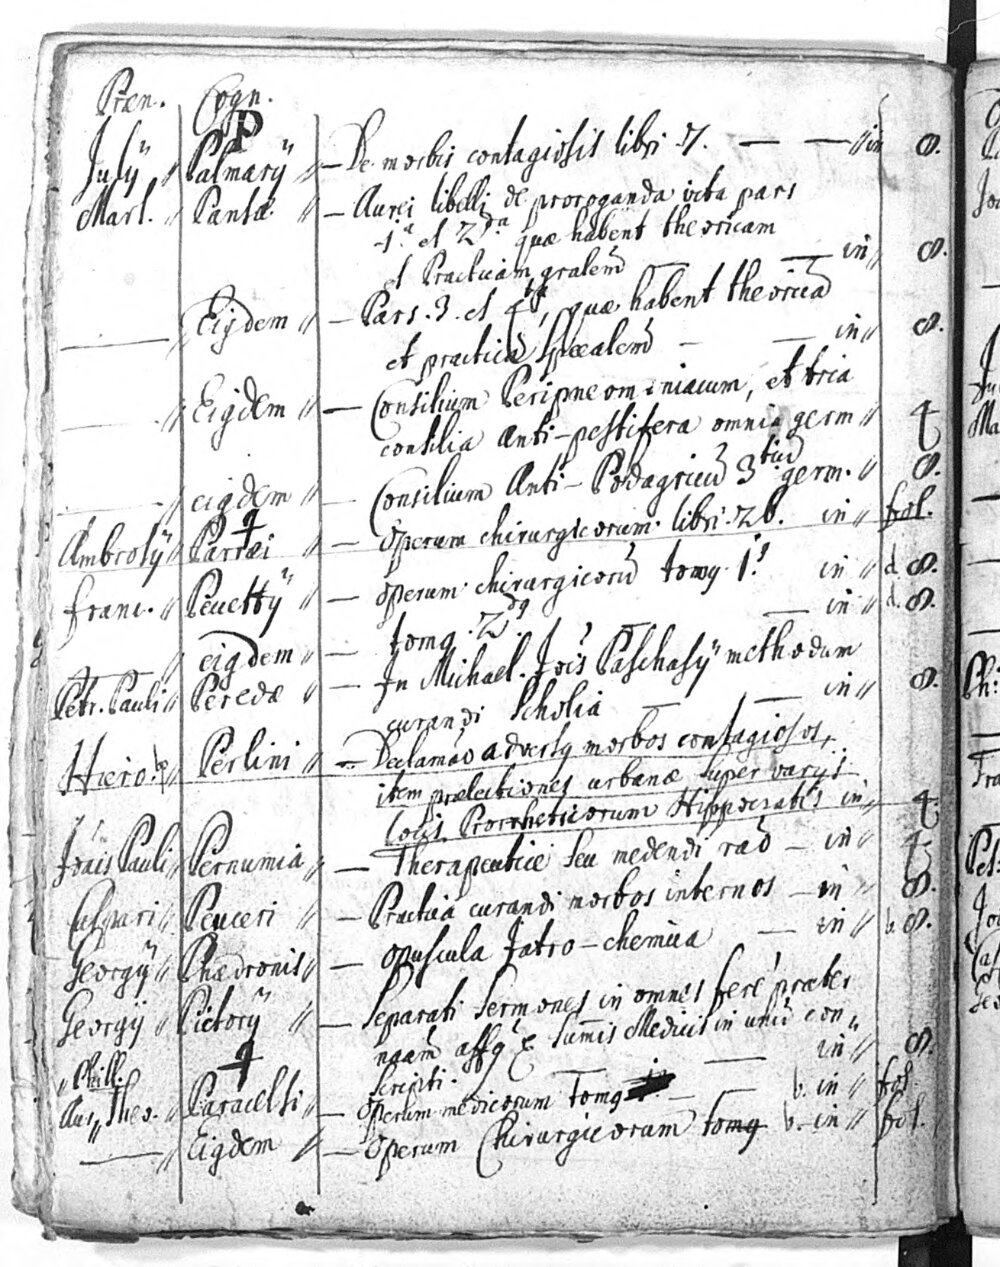 Præn. Cogn.
P
Julÿ // Palmarÿ // — De morbis contagiosis libri 7. — — // in 8.
Mart. // Pansæ. // — Aurei libelli de proroganda vita pars
1.a et 2.da quæ habent theoricam
et Practicam gralem — — in // 8.
— // Eijdem // — Pars. 3. et 4ta, quæ habent theoricã
et practicã spealem — — in // 8.
— // Eigdem // — Consilium Peripneomoniacum, et tria
consilia Anti-pestifera omnia germ // 4
— // eigdem // — Consilium Anti-Podagricũ 3tiũ germ. // 8.
Ambrosÿ // Parræi // — Operum chirurgicorum libri 26. in // fol.
Franc. // Peuettÿ // — operum chirurgicorũ tomg 1.s in // d. 8.
— // eigdem // — tomg. 2dg — in // d. 8.
Petr. Pauli // Peredæ // — In Michael. Jois Paschasÿ methodum
curandi Scholia — — in // 8.
Hiero. // Perlini // — Declamão adversg morbos contagiosos,
item prælectiones urbanæ super varys
locis Prorrheticorum Hippocratis in // 4.
Jôais Pauli // Pernumia // — Therapeutice seu medendi raõ — in // 4
Caspari // Peuceri // — Practica curandi morbos internos — in // 8.
Georgÿ // Phædronis // — opuscula Jatro-chemica — in // b. 8.
Georgÿ // Pictorÿ // — Separati Sermones in omnes ferè præter
scripti. — — in // 8.
Phill.
Aur. Theo. // Paracelsi // — Operum medicorum tomg — b. in // fol.
— // Eigdem // — Operum Chirurgicorum tomg b. in // fol.